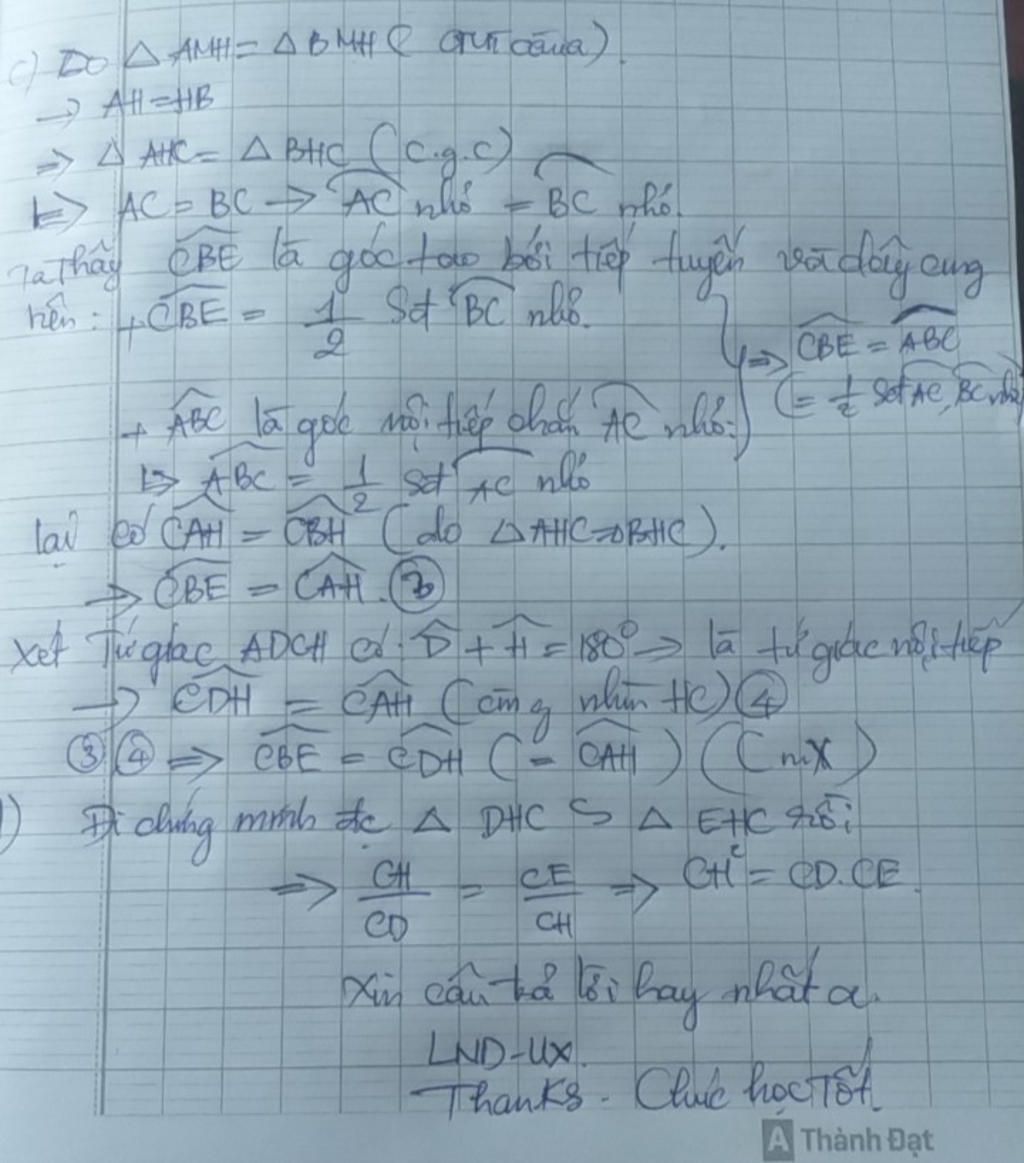 c) Do △ AMH = △ BMH ( cmt câu a).
→ AH = HB
=> △ AHC = △ BHC (c.g.c)
=> AC = BC → AC nhỏ = BC nhỏ.
Ta thấy CBE là góc tạo bởi tiếp tuyến và dây cung
nên: + CBE = 1/2 Sđ BC nhỏ.
=> CBE = ABC
(= 1/2 Sđ AC, BC nhỏ)
+ ABC là góc nội tiếp chắn AC nhỏ:
=> ABC = 1/2 Sđ AC nhỏ
lại có CAH = CBH (do △ AHC = △ BHC).
→ CBE = CAH. ③
Xét Tứ giác ADCH có: D̂ + Ĥ = 180° → là tứ giác nội tiếp
→ CDH = CAH (cùng nhìn HC) ④
③ ④ => CBE = CDH (= CAH) (CmX)
) Đi chứng minh đc △ DHC ∽ △ EHC rồi
=> CH/CD = CE/CH => CH² = CD.CE.
Xin câu trả lời hay nhất ạ.
LND-UX.
Thanks - Chúc học Tốt.
A Thành Đạt